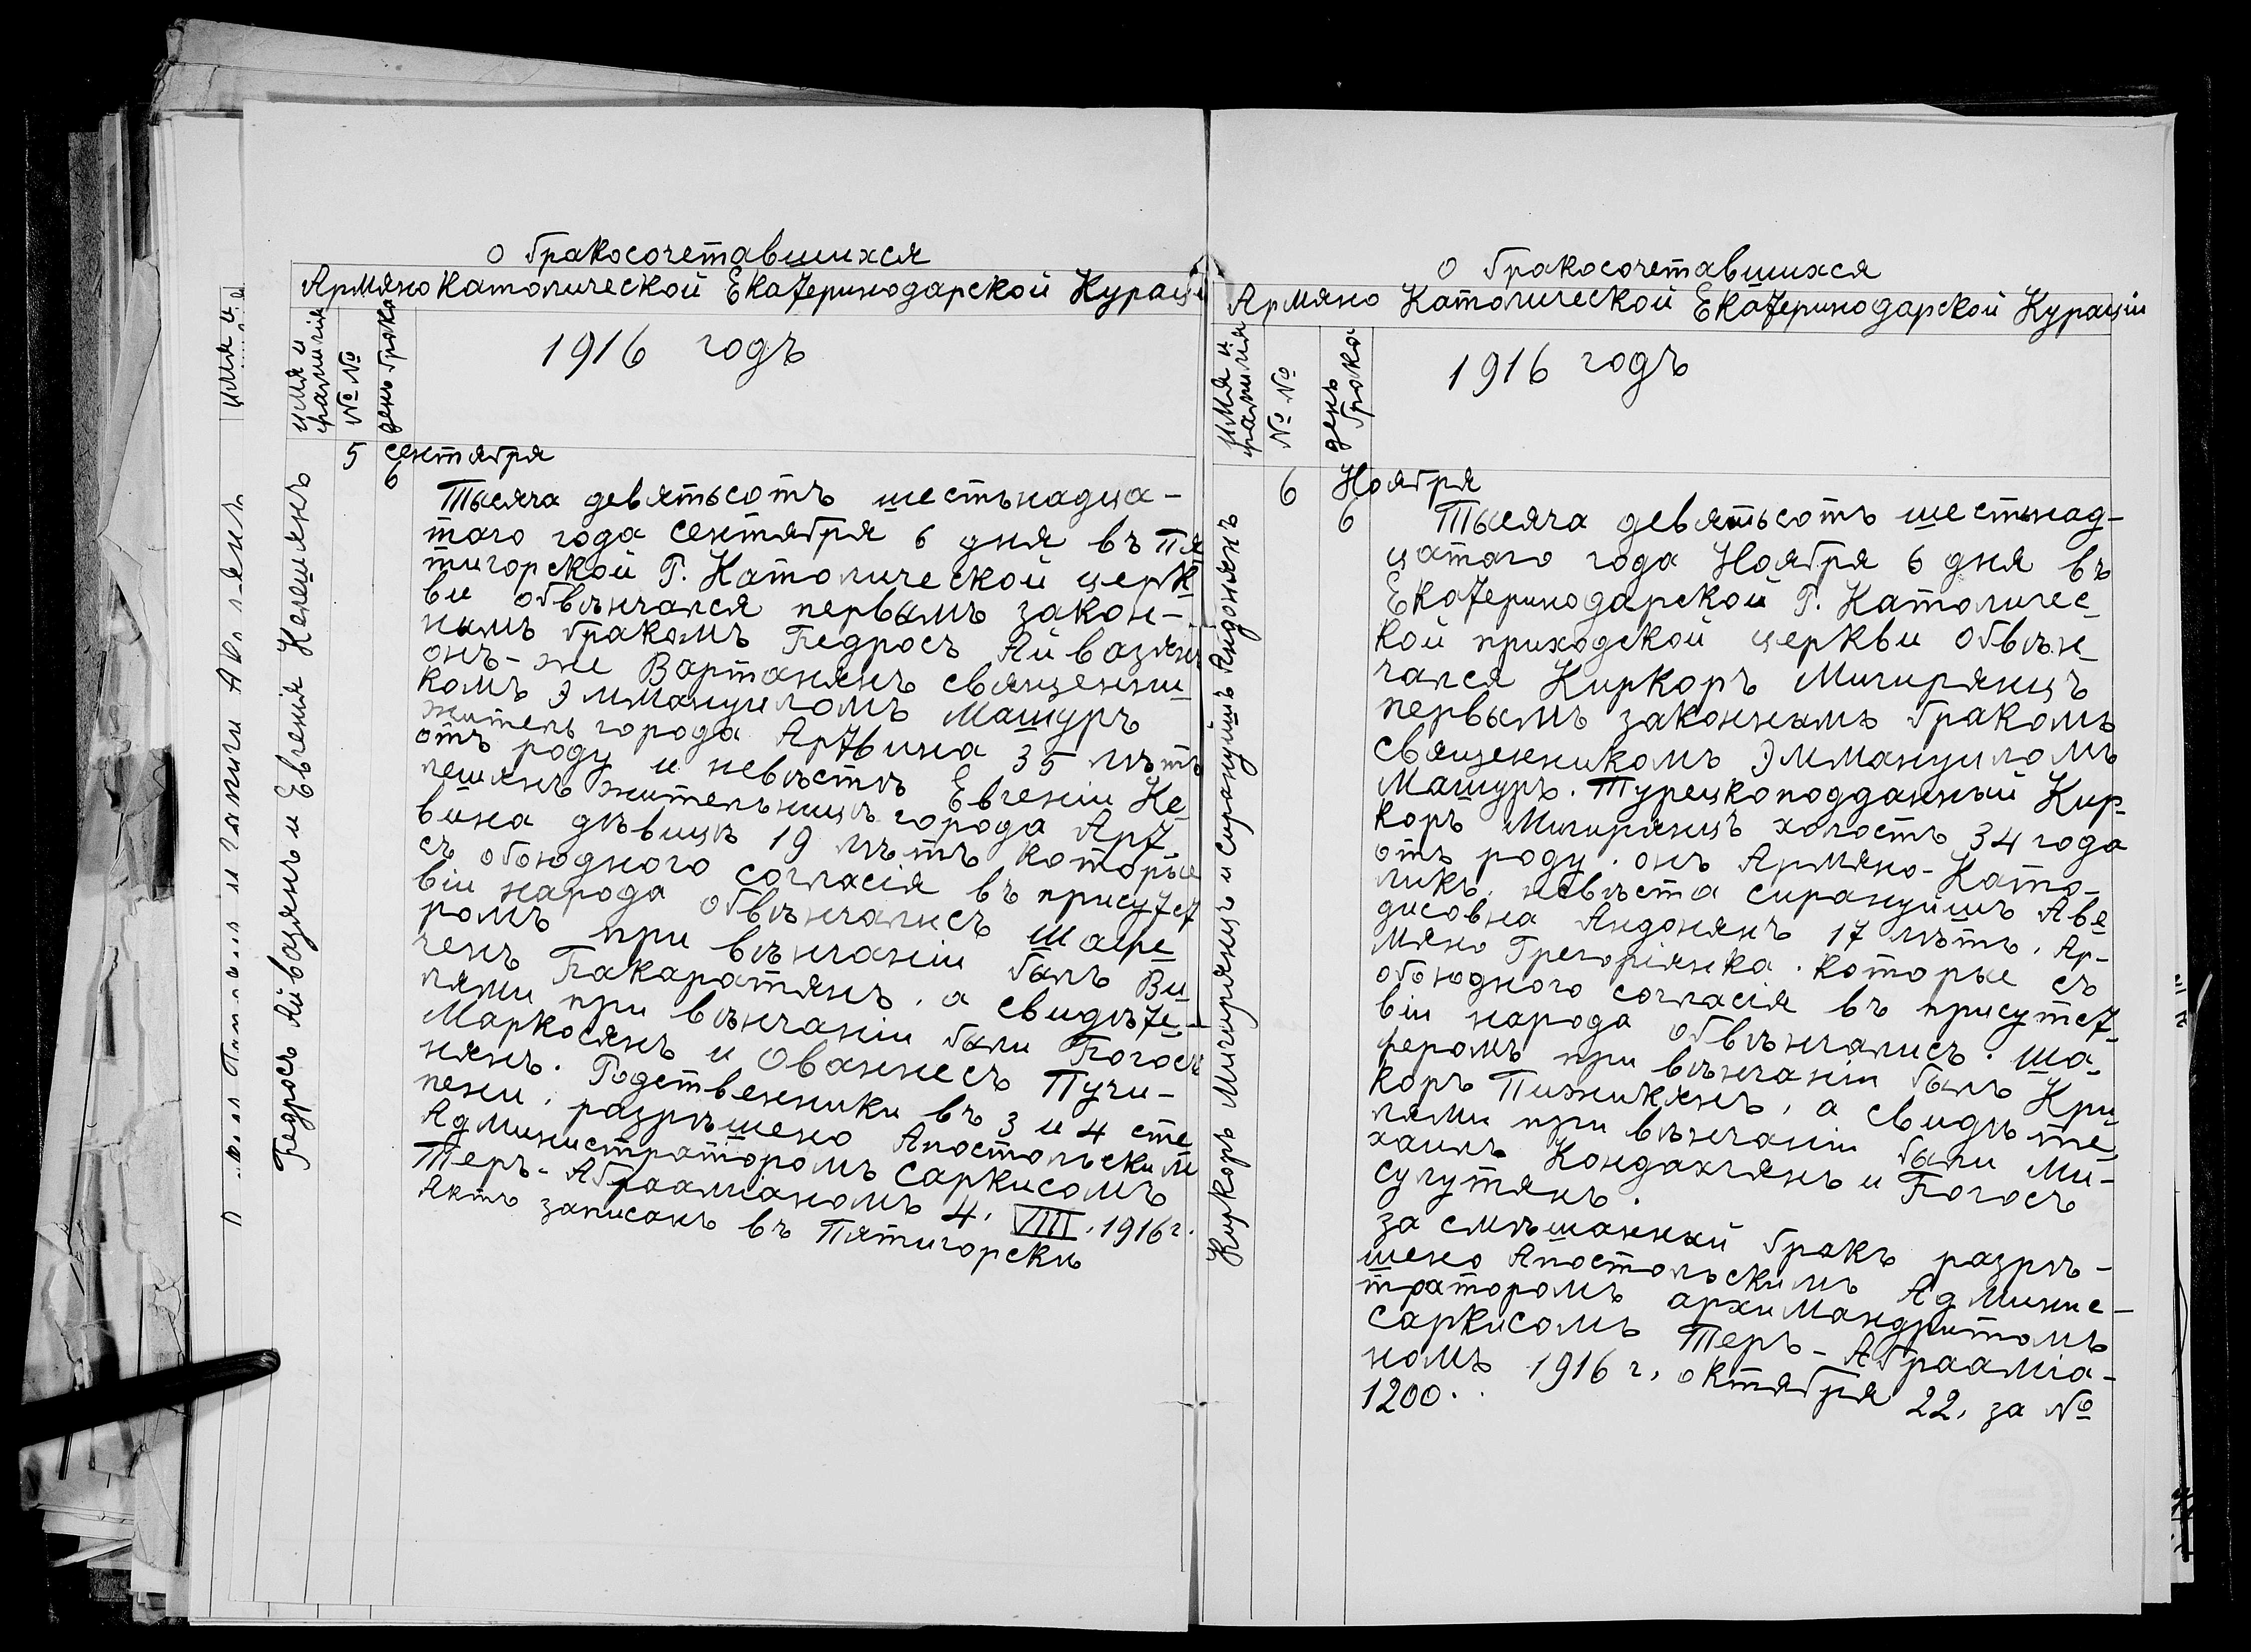 о бракосочетавшихся
Армяно Католической Екатеринодарской Курацi
имя и
фамилiя
№ №
день брака
1916 годъ
5 сентября
6
Педросъ Айвазянъ и Евгенiя Келешянъ
Тысяча девятьсотъ шестьнадца-
таго года сентября 6 дня въ Пя
тигорской Р. Католической церк
ви обвѣнчался первымъ закон-
нымъ бракомъ Педросъ Айвазянъ
онъ-же Вартанянъ священни
комъ Эммануиломъ Машуръ
житель города Артвина 35 лѣтъ
отъ роду и невѣстѣ Евгенiи Ке
лешянъ жительницѣ города Арт
вина дѣвицѣ 19 лѣтъ которые
съ обоюдного согласiя въ присутст
вiи народа обвѣнчались шафе
ромъ при вѣнчанiи былъ Ви
ченъ Пакаратянъ, а свидѣте
лями при вѣнчанiи были Погосъ
Маркосянъ и Ованнесъ Пучи-
нянъ. Родственники въ 3 и 4 сте
пени, разрѣшено Апостольским
Администраторомъ Саркисомъ
Теръ-Абраамiаномъ 4. VIII. 1916 г.
Актъ записанъ въ Пятигорскѣ
о бракосочетавшихся
Армяно Католической Екатеринодарской Курацiи
имя и
фамилiя
№ №
день
брака
1916 годъ
6 Ноября
6
Киркоръ Мигирянцъ и Сирануйшъ Андонянъ
Тысяча девятьсотъ шестьнад-
цатаго года Ноября 6 дня въ
Екатеринодарской Р. Католичес
кой приходской церкви обвѣн
чался Киркоръ Мигирянцъ
первымъ законнымъ бракомъ
священникомъ Эммануиломъ
Машуръ. Турецкоподданный Кир-
коръ Мигирянцъ холостъ 34 года
отъ роду. онъ Армяно-Като-
ликъ, невѣста сирануйшъ Аве
дисовна Андонянъ 17 лѣтъ, Ар-
мяно Грегорiянка. которые съ
обоюдного согласiя въ присутст
вiи народа обвѣнчались. ша-
феромъ при вѣнчанiи былъ Кри
коръ Пижикянъ, а свидѣте
лями при вѣнчанiи были Ми-
хаилъ Кондахчянъ и Погосъ
сугутянъ.
за смѣшанный бракъ разрѣ-
шено Апостольскимъ Админис-
траторомъ архимандритомъ
саркисомъ Теръ-Абраамiа-
номъ 1916 г. октября 22, за №
1200.